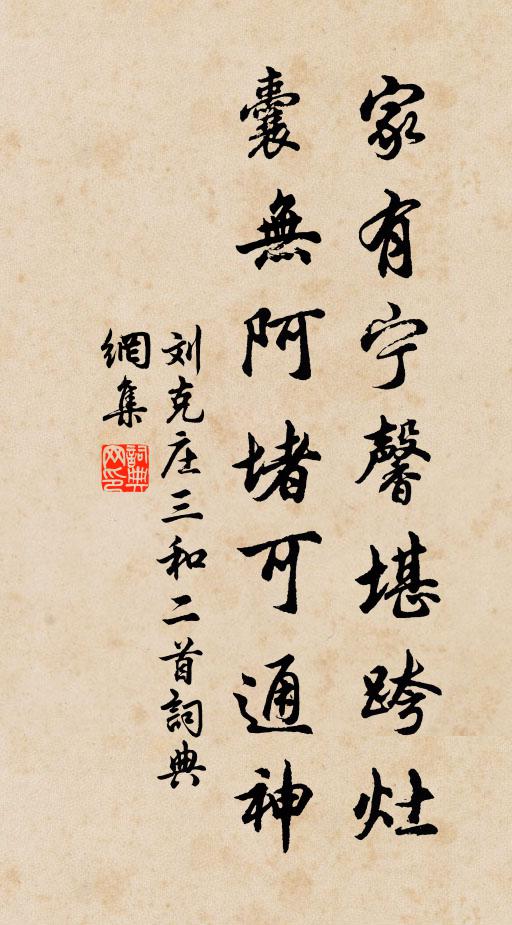 家有宁馨堪跨灶
囊無阿堵可通神
刘克庄三和二首詞典
網集
詞典
网印